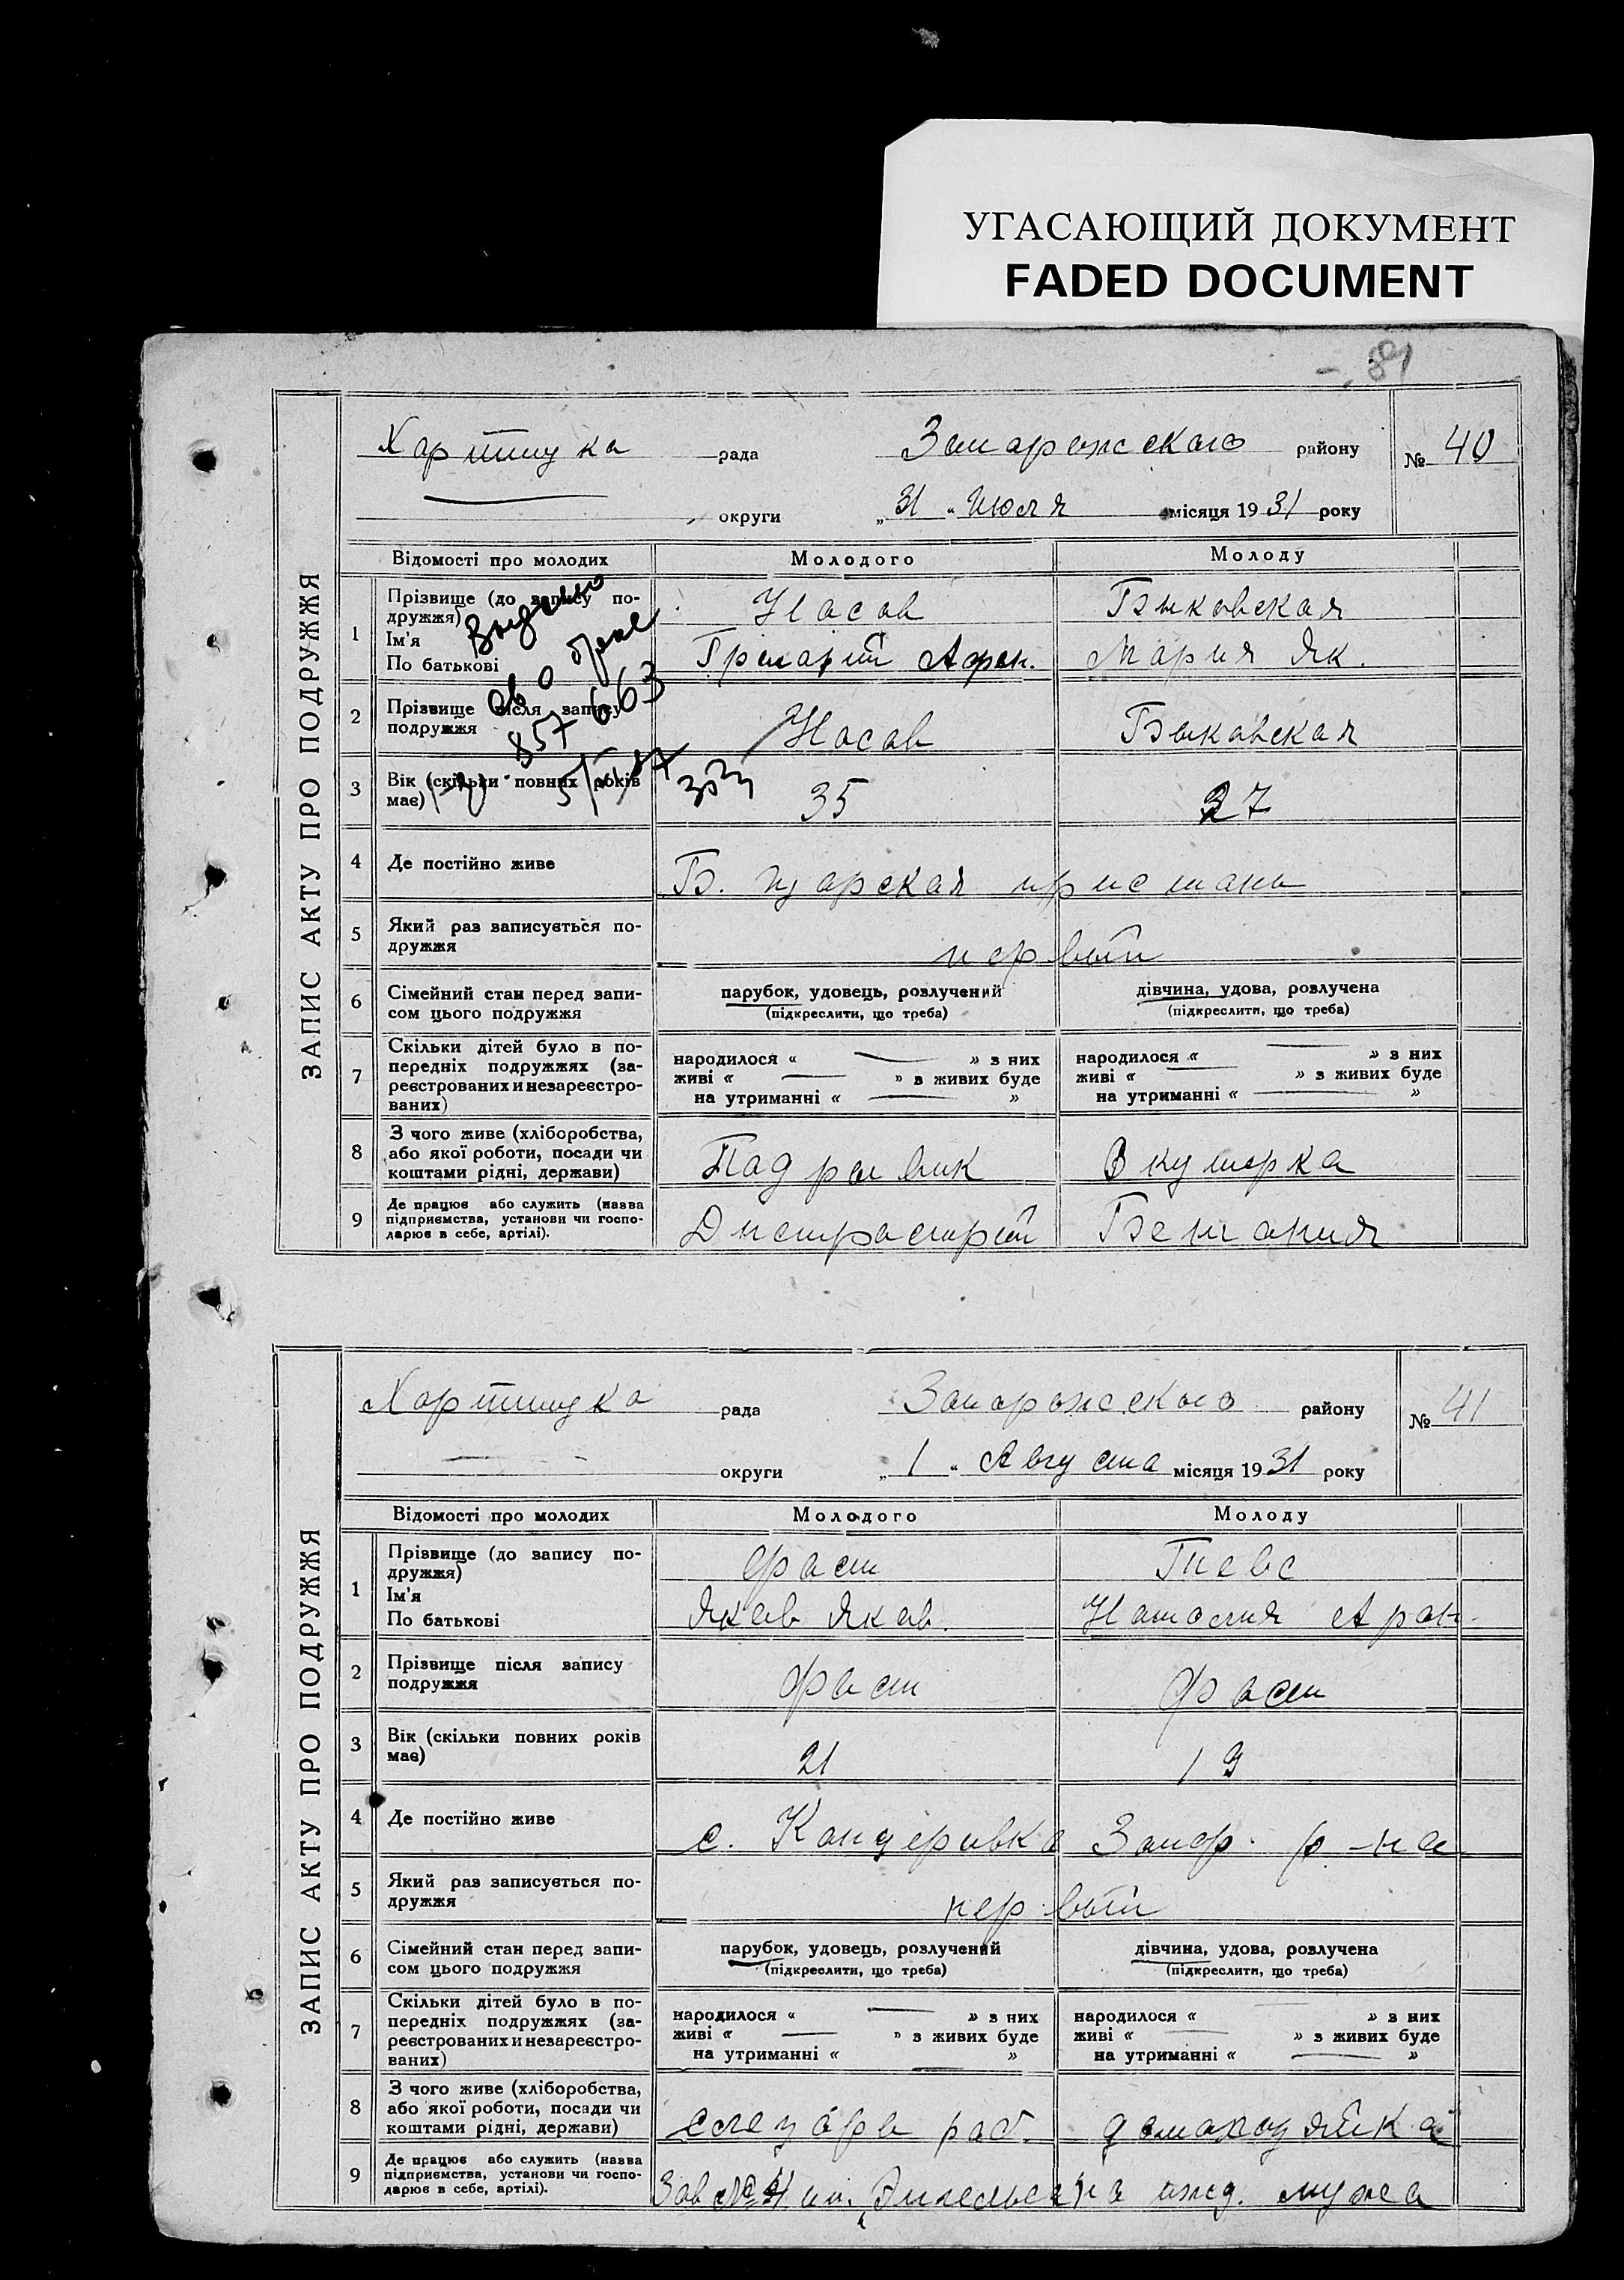 УГАСАЮЩИЙ ДОКУМЕНТ
FADED DOCUMENT
81
ЗАПИС АКТУ ПРО ПОДРУЖЖЯ
рада Запорожского району № 40
округи „31“ Июля місяця 1931 року
Відомості про молодих Молодого Молоду
1 Прізвище (до запису по-
дружжя) Носов Быковская
Ім'я
По батькові Григорий Афан. Мария Як.
Выдано
св о браке
857663
2 Прізвище після запису
подружжя Носов Быковская
3 Вік (скільки повних років
має) 35 27
4 Де постійно живе Б. царская пристань
5 Який раз записується по-
дружжя первый
6 Сімейний стан перед запи-
сом цього подружжя парубок, удовець, розлучений дівчина, удова, розлучена
(підкреслити, що треба) (підкреслити, що треба)
7 Скільки дітей було в по-
передніх подружжях (за-
реєстрованих и незареєстро-
ваних)
народилося « — » з них народилося « — » з них
живі « — » з живих буде живі « — » з живих буде
на утриманні « — » на утриманні « — »
8 З чого живе (хліборобства,
або якої роботи, посади чи
коштами рідні, держави) Подрывник Акушорка
9 Де працює або служить (назва
підприємства, установи чи госпо-
дарює в себе, артілі). Днепрострой Бетания
ЗАПИС АКТУ ПРО ПОДРУЖЖЯ
рада Запорожского району № 41
округи „1“ Августа місяця 1931 року
Відомості про молодих Молодого Молоду
1 Прізвище (до запису по-
дружжя) Фаст
Ім'я
По батькові Яков Яков. Наталия Арон.
2 Прізвище після запису
подружжя Фаст Фаст
3 Вік (скільки повних років
має) 21 19
4 Де постійно живе с. Канцеровка Запор. р-на
5 Який раз записується по-
дружжя первый
6 Сімейний стан перед запи-
сом цього подружжя парубок, удовець, розлучений дівчина, удова, розлучена
(підкреслити, що треба) (підкреслити, що треба)
7 Скільки дітей було в по-
передніх подружжях (за-
реєстрованих и незареєстро-
ваних)
народилося « — » з них народилося « — » з них
живі « — » з живих буде живі « — » з живих буде
на утриманні « — » на утриманні « — »
8 З чого живе (хліборобства,
або якої роботи, посади чи
коштами рідні, держави) слезарь раб. домохозяйка
9 Де працює або служить (назва
підприємства, установи чи госпо-
дарює в себе, артілі). Зав № им. Энгельса на ижд. мужа